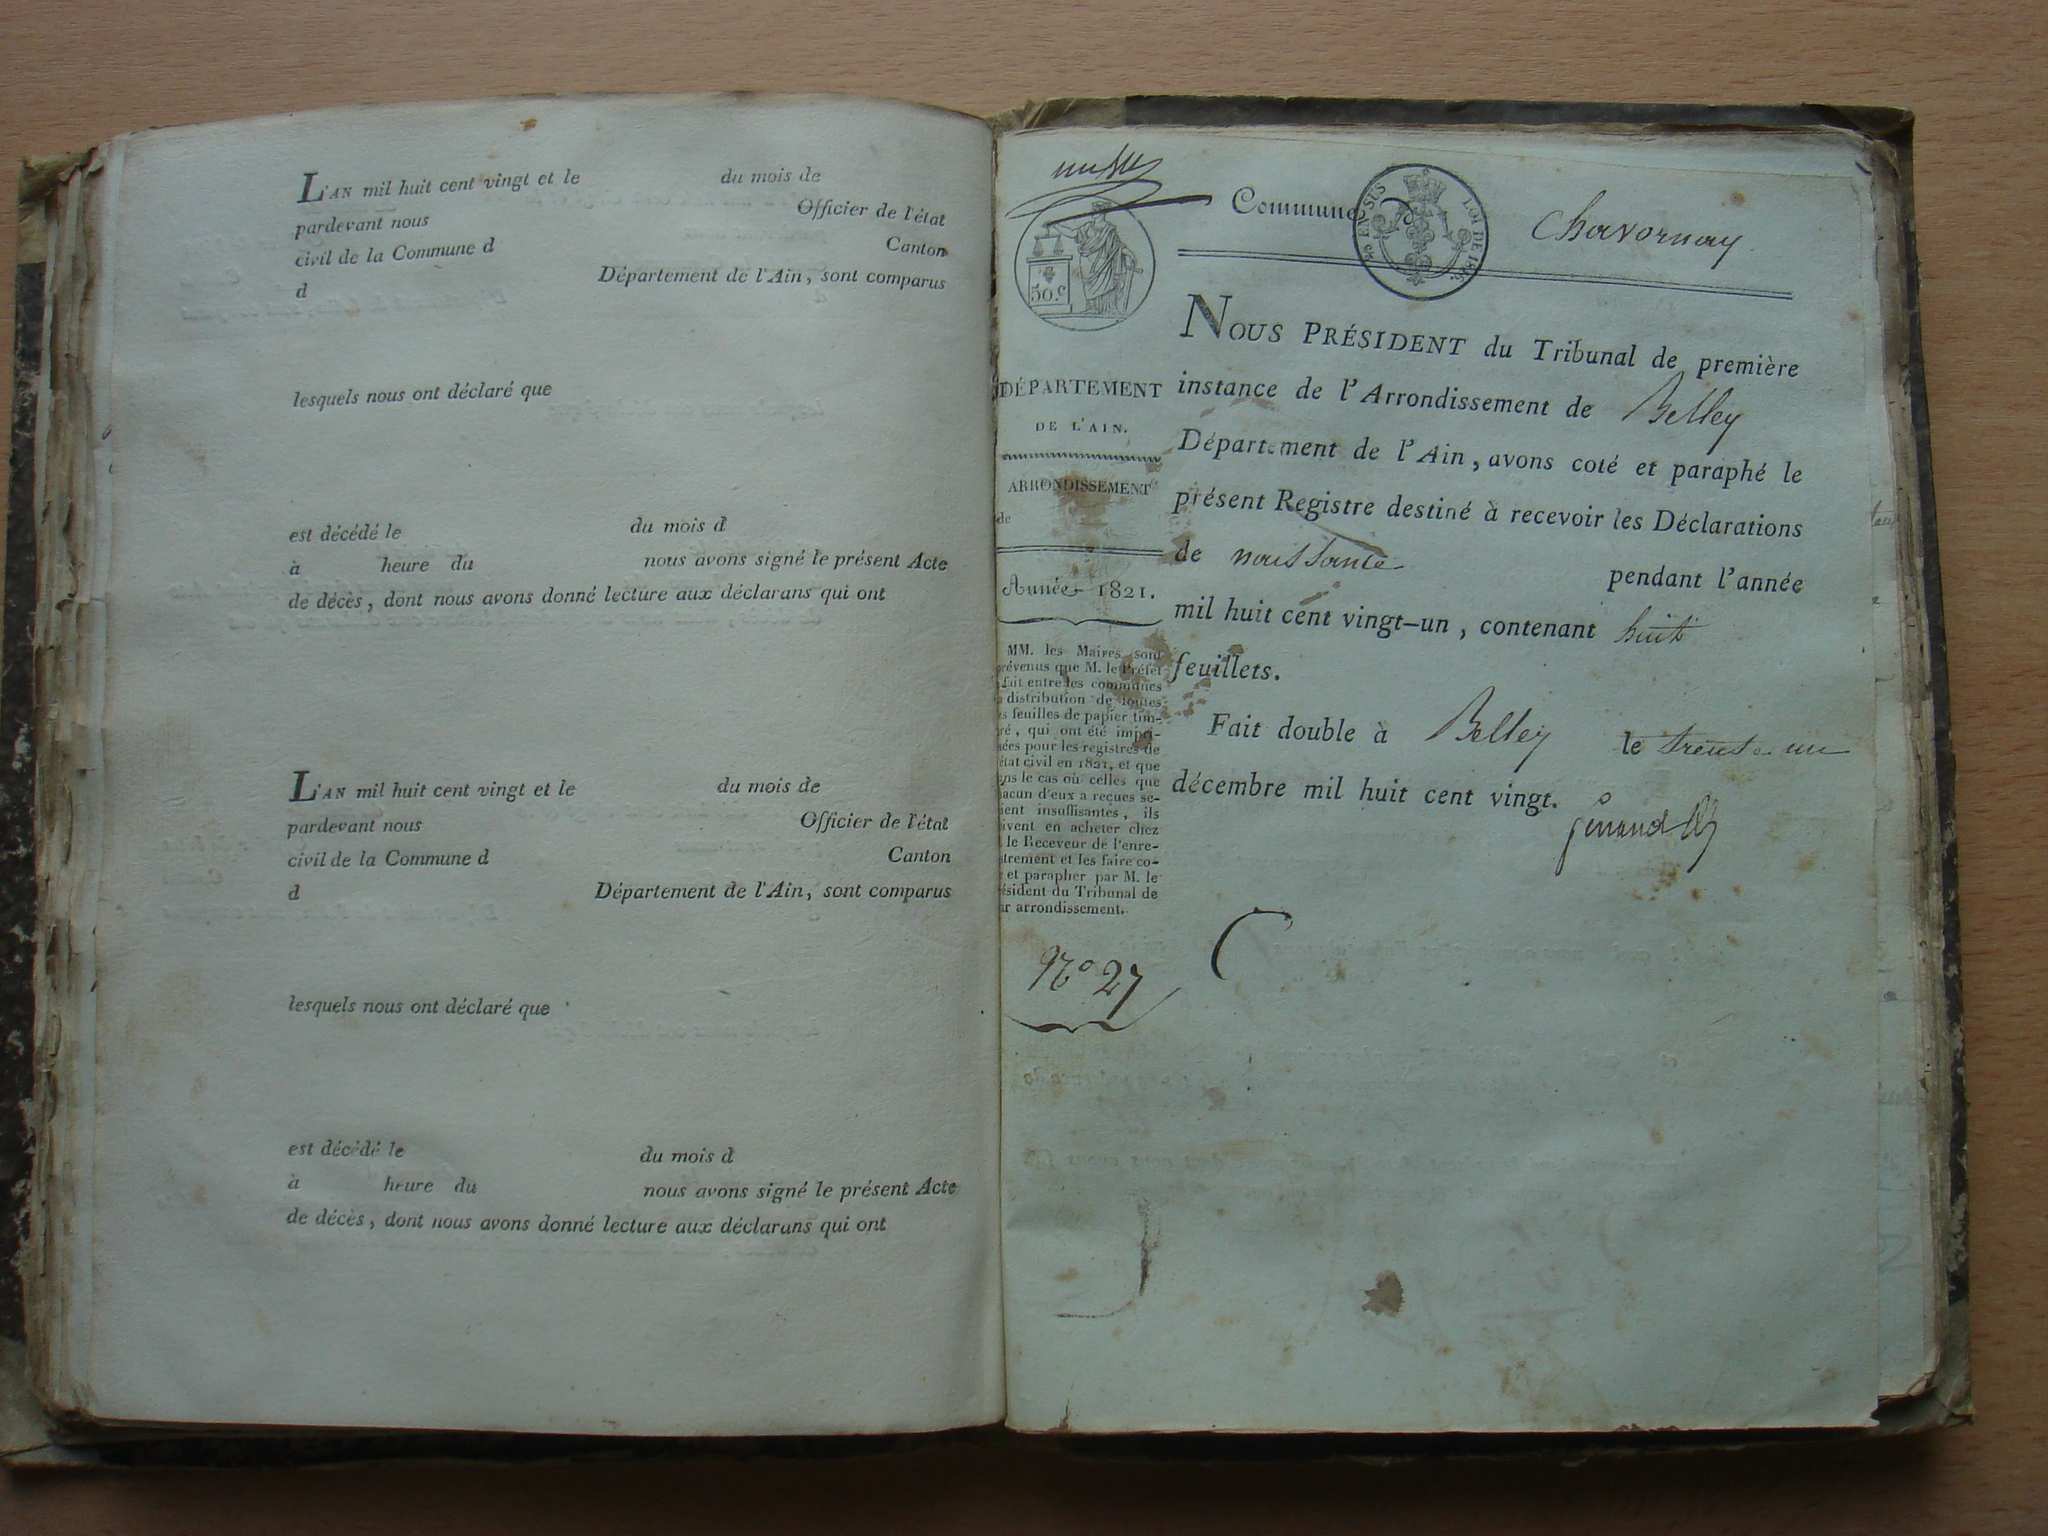 L'AN mil huit cent vingt et le du mois de
pardevant nous Officier de l'état
civil de la Commune d Canton
d Département de l'Ain, sont comparus
lesquels nous ont déclaré que
est décédé le du mois d
à heure du nous avons signé le présent Acte
de décès, dont nous avons donné lecture aux déclarans qui ont
L'AN mil huit cent vingt et le du mois de
pardevant nous Officier de l'état
civil de la Commune d Canton
d Département de l'Ain, sont comparus
lesquels nous ont déclaré que
est décédé le du mois d
à heure du nous avons signé le présent Acte
de décès, dont nous avons donné lecture aux déclarans qui ont
Commune Chavornay
50.c
EN SUS LOI DE
DÉPARTEMENT
DE L'AIN.
ARRONDISSEMENT
de
Année 1821.
MM. les Maires sont
prévenus que M. le Préfet
fait entre les communes
distribution de toutes
feuilles de papier tim-
, qui ont été impri-
pour les registres de
état civil en 1821, et que
le cas où celles que
d'eux a reçues se-
insuffisantes, ils
en acheter chez
le Receveur de l'enre-
et les faire co-
et parapher par M. le
du Tribunal de
arrondissement.
N.o 27
NOUS PRÉSIDENT du Tribunal de première
instance de l'Arrondissement de Belley
Département de l'Ain, avons coté et paraphé le
présent Registre destiné à recevoir les Déclarations
de naissance pendant l'année
mil huit cent vingt-un, contenant huit
feuillets.
Fait double à Belley le trente un
décembre mil huit cent vingt.